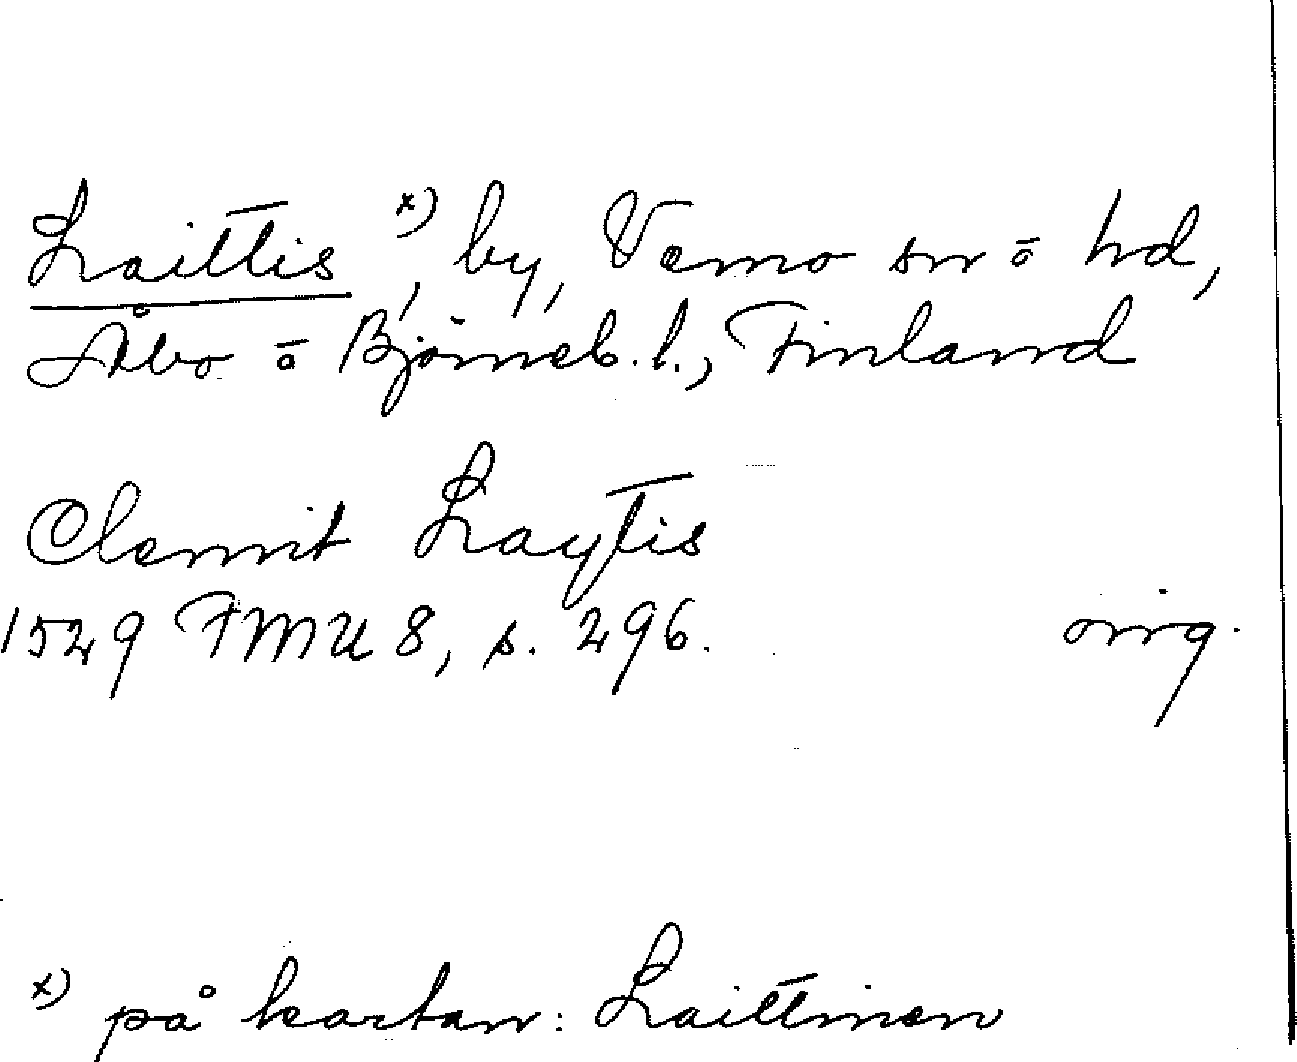 Laittis x), by, Vemo sn ō hd,
Åbo ō Björneb. l., Finland
Clemit Laytis
1529 FMU 8, s. 296. orig.
x) på kartan: Laittinen